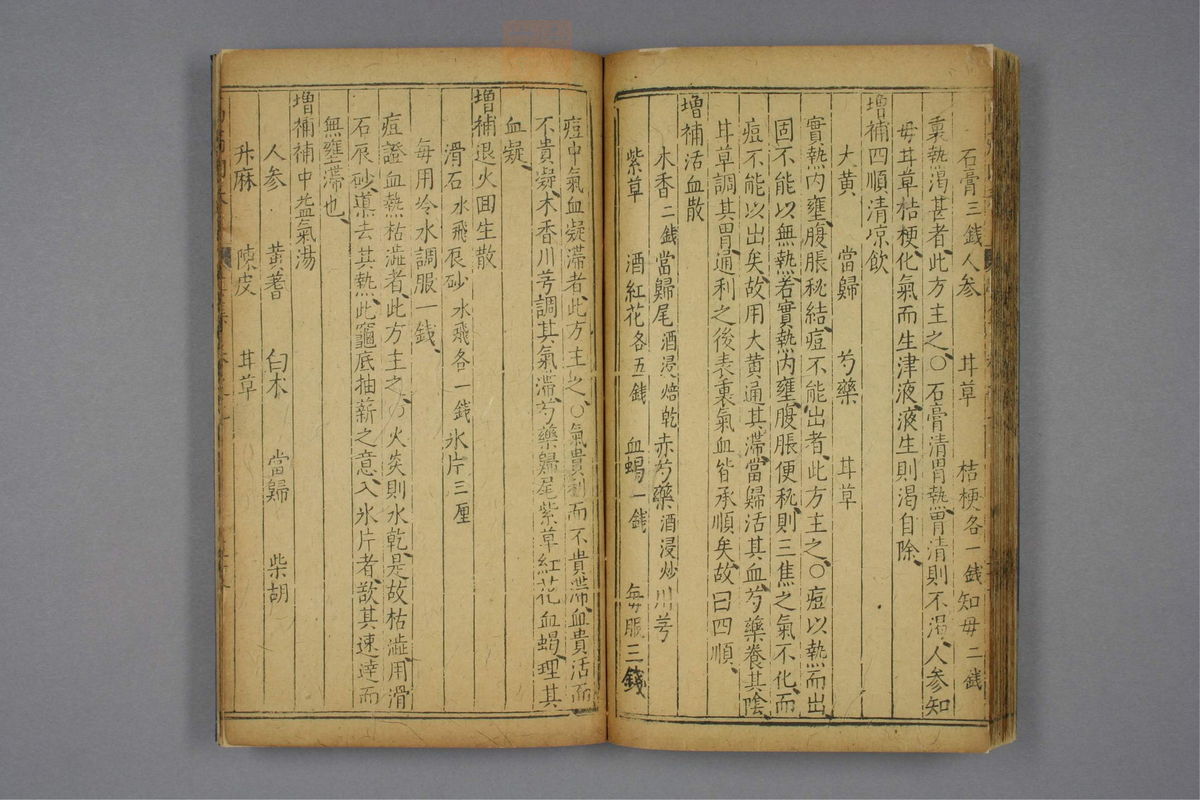 石膏三錢人参 甘草 桔梗各一錢知母二錢
裏熱渴甚者此方主之○石膏清胃熱胃清則不渴人参知
母甘草桔梗化氣而生津液液生則渴自除
增補四順清凉飲
大黄 當歸 芍藥 甘草
實熱内壅腹脹秘結痘不能出者此方主之○痘以熱而出
固不能以無熱若實熱内壅腹脹便秘則三焦之氣不化而
痘不能以出矣故用大黄通其滯當歸活其血芍藥養其陰
甘草調其胃通利之後表裏氣血皆承順矣故曰四順
增補活血散
木香二錢當歸尾酒浸焙乾赤芍藥酒浸炒川芎
紫草 酒紅花各五錢 血蝎一錢 每服三錢
痘中氣血凝滯者此方主之○氣貴利而不貴滯血貴活而
不貴凝木香川芎調其氣滯芍藥歸尾紫草紅花血蝎理其
血凝
增補退火回生散
滑石水飛辰砂水飛各一錢氷片三厘
每用冷水調服一錢
痘證血熱枯澁者此方主之○火炎則水乾是故枯澁用滑
石辰砂以去其熱此竈底抽薪之意入氷片者欲其速達而
無壅滯也
增補補中益氣湯
人参 黄蓍 白朮 當歸 柴胡
升麻 陳皮 甘草